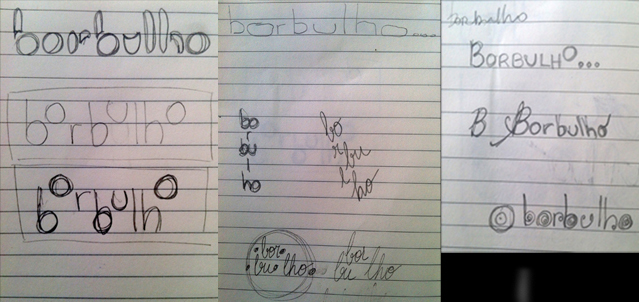 borbulho
borbulho
borbulho
borbulho...
bo
r
bu
l
ho
bo
rbu
lho
bor
bu lho
bor
bu lho
borbulho
BORBULHO...
B Borbulho
borbulho